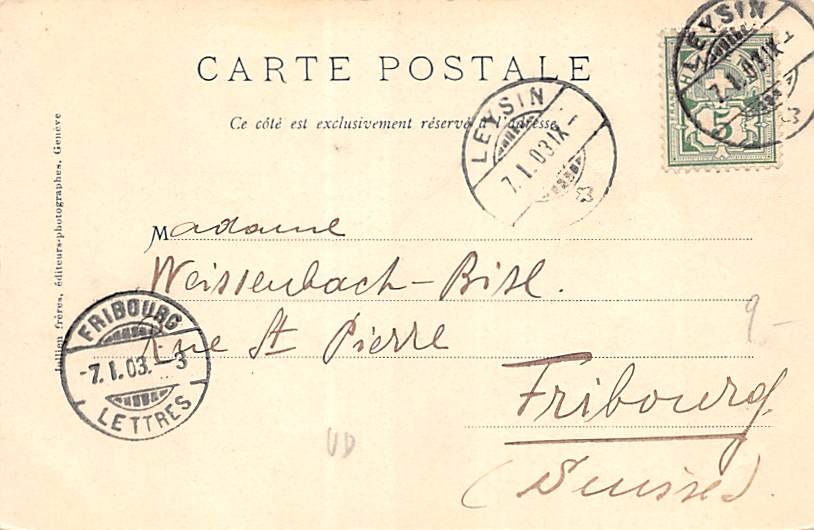 CARTE POSTALE
Ce côté est exclusivement réservé à l'adresse.
LEYSIN
7.1.03.IX-
5
LEYSIN
7.1.03.IX-
Madame
Weissenbach-Bise.
Rue St Pierre
Fribourg.
(Suisse).
9.-
UD
FRIBOURG
-7.1.03.-3
LETTRES
Jullien frères, éditeurs-photographes, Genève